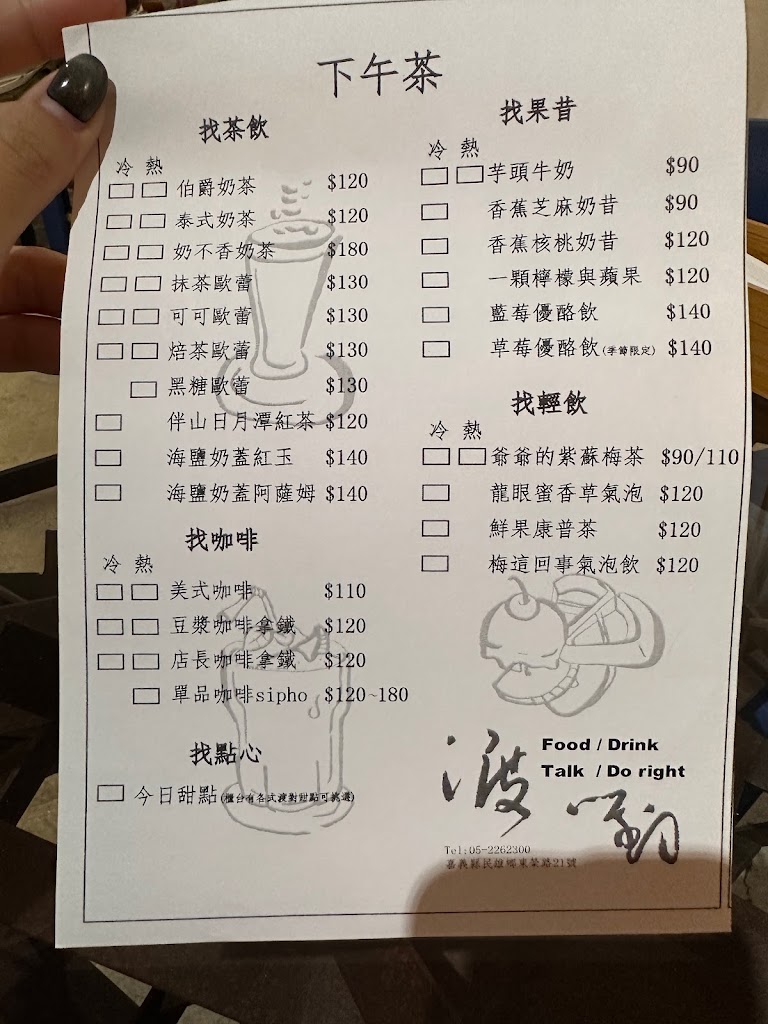 下午茶
找茶飲
冷 熱
伯爵奶茶 $120
泰式奶茶 $120
奶不香奶茶 $180
抹茶歐蕾 $130
可可歐蕾 $130
焙茶歐蕾 $130
黑糖歐蕾 $130
伴山日月潭紅茶 $120
海鹽奶蓋紅玉 $140
海鹽奶蓋阿薩姆 $140
找咖啡
冷 熱
美式咖啡 $110
豆漿咖啡拿鐵 $120
店長咖啡拿鐵 $120
單品咖啡sipho $120~180
找點心
今日甜點(櫃台有各式渡對甜點可挑選)
找果昔
冷 熱
芋頭牛奶 $90
香蕉芝麻奶昔 $90
香蕉核桃奶昔 $120
一顆檸檬與蘋果 $120
藍莓優酪飲 $140
草莓優酪飲(季節限定) $140
找輕飲
冷 熱
爺爺的紫蘇梅茶 $90/110
龍眼蜜香草氣泡 $120
鮮果康普茶 $120
梅這回事氣泡飲 $120
渡 對
Food / Drink
Talk / Do right
Tel:05-2262300
嘉義縣民雄鄉東榮路21號